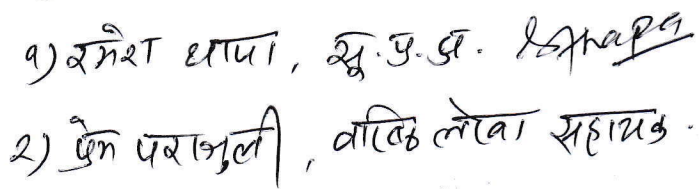 १) रमेश थापा, सू.प्र.अ.
२) प्रेम पराजुली, वरिष्ठ लेखा सहायक.